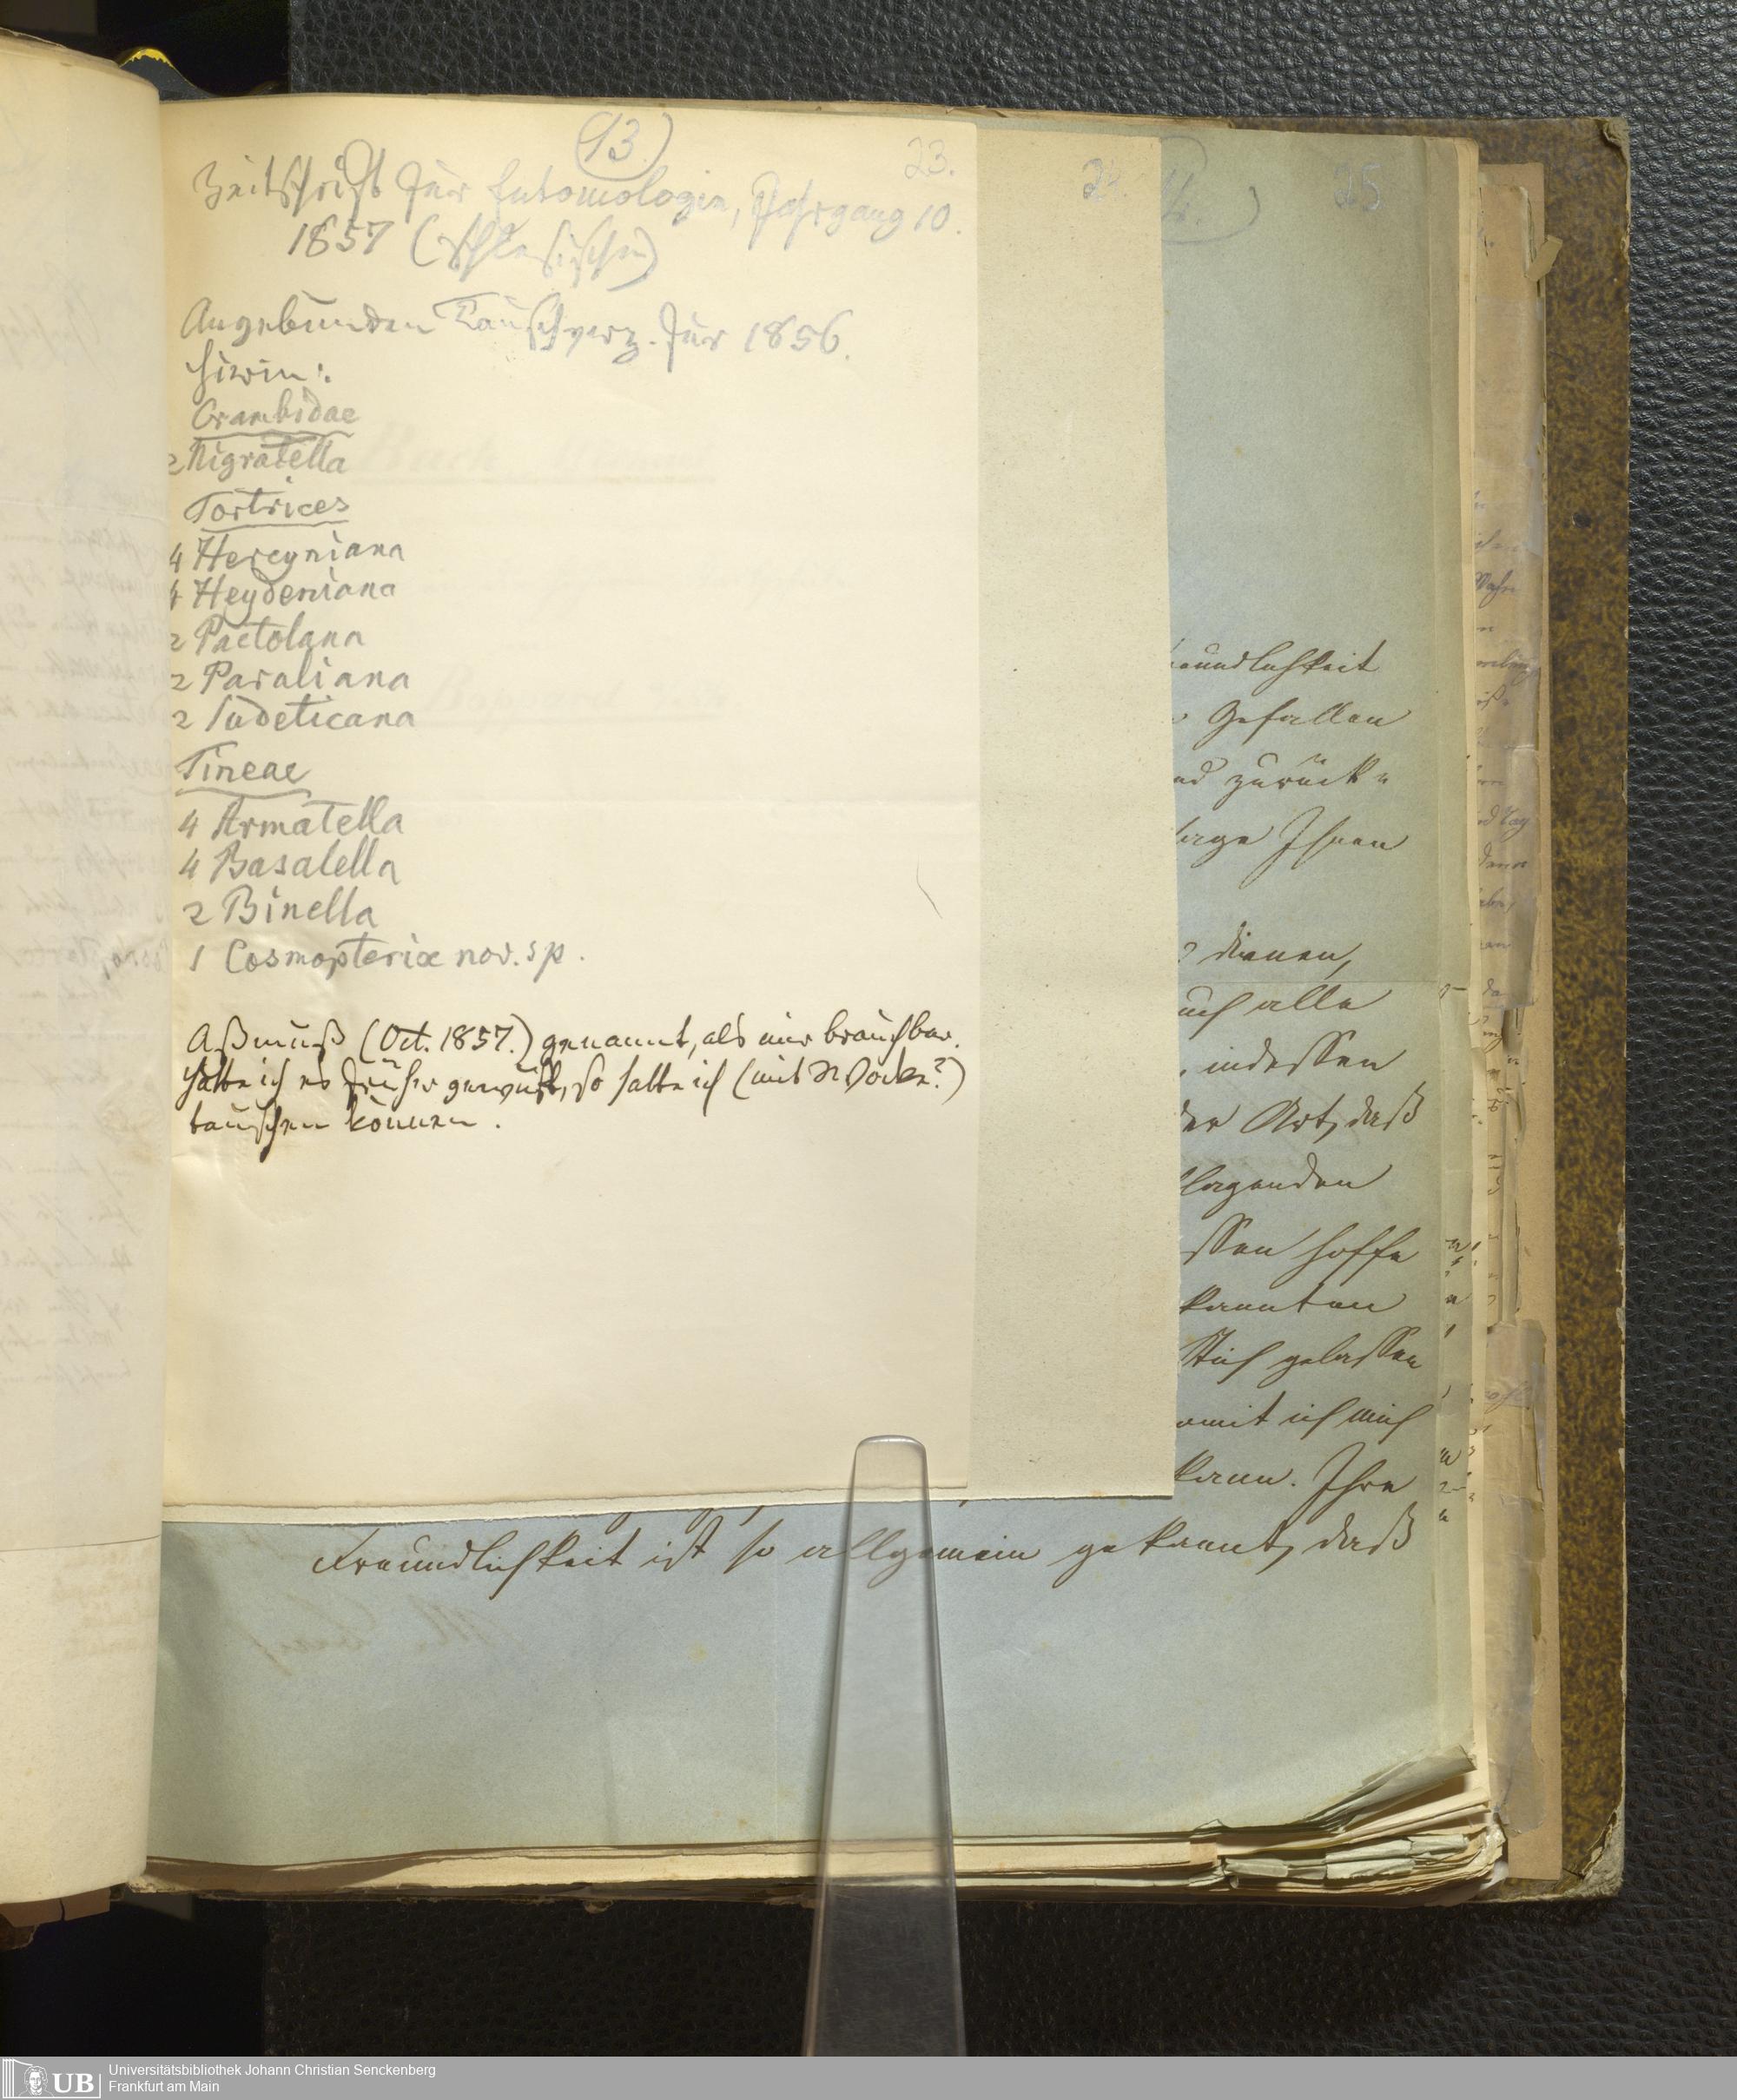 (13.)
23.
Zeitschrift für Entomologie, Jahrgang 10.
1857 (schlesische)
Angebunden Tauschverz. für 1856.
hierin:
Crambidae
2 Nigratella
Tortrices
4 Hercyniana
4 Heydeniana
2 Pactolana
2 Paraliana
2 Sudeticana
Tineae
4 Armatella
4 Basalella
2 Binella
1 Cosmopterix nov. sp.
Aßmuß (Oct. 1857.) genannt, als mir brauchbar.
Hätte ich es früher gewußt, so hätte ich (mit Wocke?)
tauschen können.
25
Gefallen
zurück=
Ihnen
dienen,
alle
, indessen
der Art, daß
hoffe
kannten
Stich gelassen
omit ich mich
kann. Ihre
Freundlichkeit ist so allgemein gekannt, daß
UB
Universitätsbibliothek Johann Christian Senckenberg
Frankfurt am Main